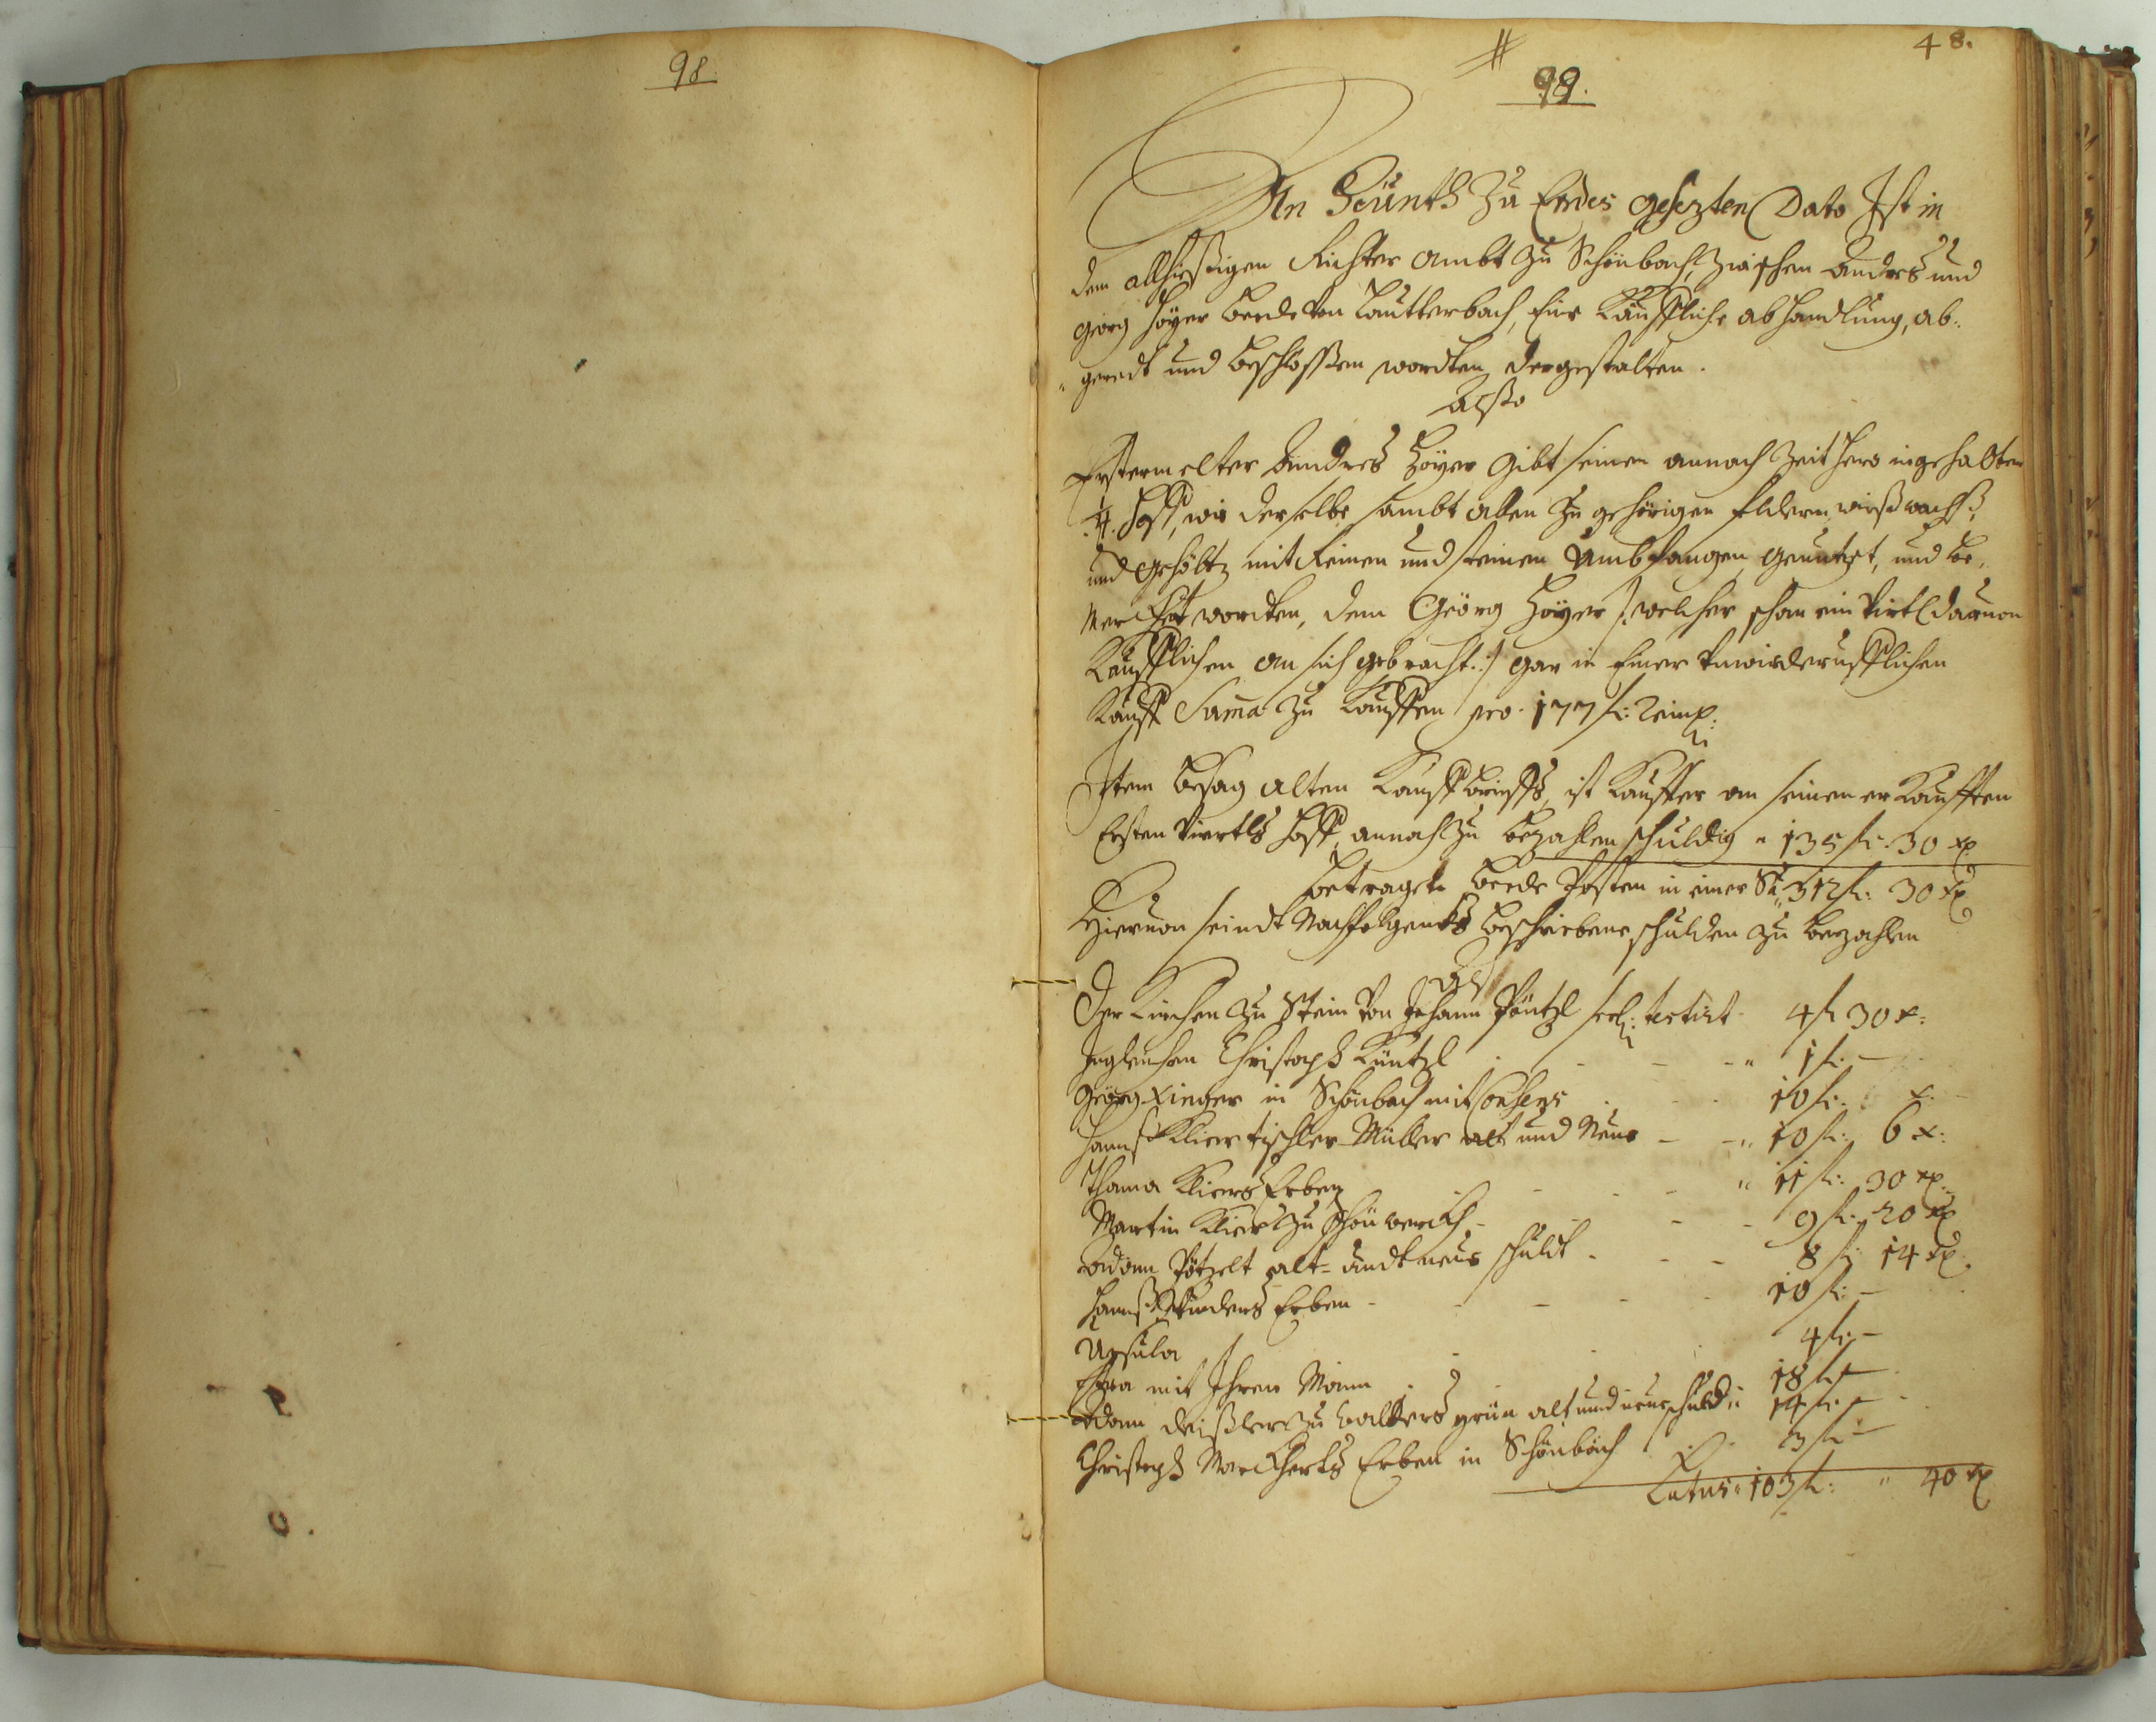 98
#
48.
99.
An Heünth Zu Endes gesezten Dato Ist in
dem allhießigen Richter ambt zu Schönbach, zwischen Andres und
Georg Höyer beede von Lautterbach, eine Kauffliche abhandlung, ab-
geredt und beschlossen wordten, dergestalten.
Alßo
Erstermelter Andres Höyer gibt seinen annoch Zeithero ingehalten
¼ Hoff, wie derselbe sambt allen zu gehörigen feldern, wießwachß,
und gehöltz mit Reinen und steinen Umbfangen, genutzet, und be-
Merckhet wordten, dem Geörg Höyer /: welcher schon ein Virtl daruon
Kaufflichen an sich gebracht :/ gar in Einer Unwiderrufflichen
Kauff Suma zu Kauffen pro 177 fl: Reinl:
Item besag alten Kauffbrieffs, ist Kauffer an seinem erKaufften
Ersten Viertls Hoff, annoch zu bezahlen schuldig 135 fl: 30 xr
betraget beede Posten in einer Sa. 312 fl: 30 xr
Hieruon seindt Nachfolgents beschriebene schulden zu bezahlen
als
Der Kirchen zu Stein von Johann Pöntzl seel: testirt 4 fl 30 x:
Ingleichen Christoph Küntzl 1 fl: —
Georg Xinger in Schönbach mit Consens 10 fl: x:
Hannß Klier tischler Müller alt und Neue 10 fl: 6 x:
Thama Kliers Erben 11 fl: 30 xr
Martin Klier zu Schönwerth 9 fl: 20 xr
Adam Pötzelt alt- undt neue schuldt 8 fl: 14 xr
Hannß Erben 10 fl: —
Ursula 4 fl: —
Eva mit Ihren Mann 18 fl —
Adam zu Walters grün alt und neue schuld 14 fl: —
Christoph Marckherts Erben in Schönbach 3 fl —
Latus 103 fl: 40 xr